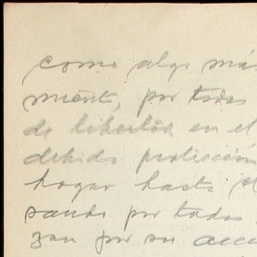 como algo más
miento, por todas
de libertad en el
debida protección
hogar hasta el
sando por todas
zan por su acc